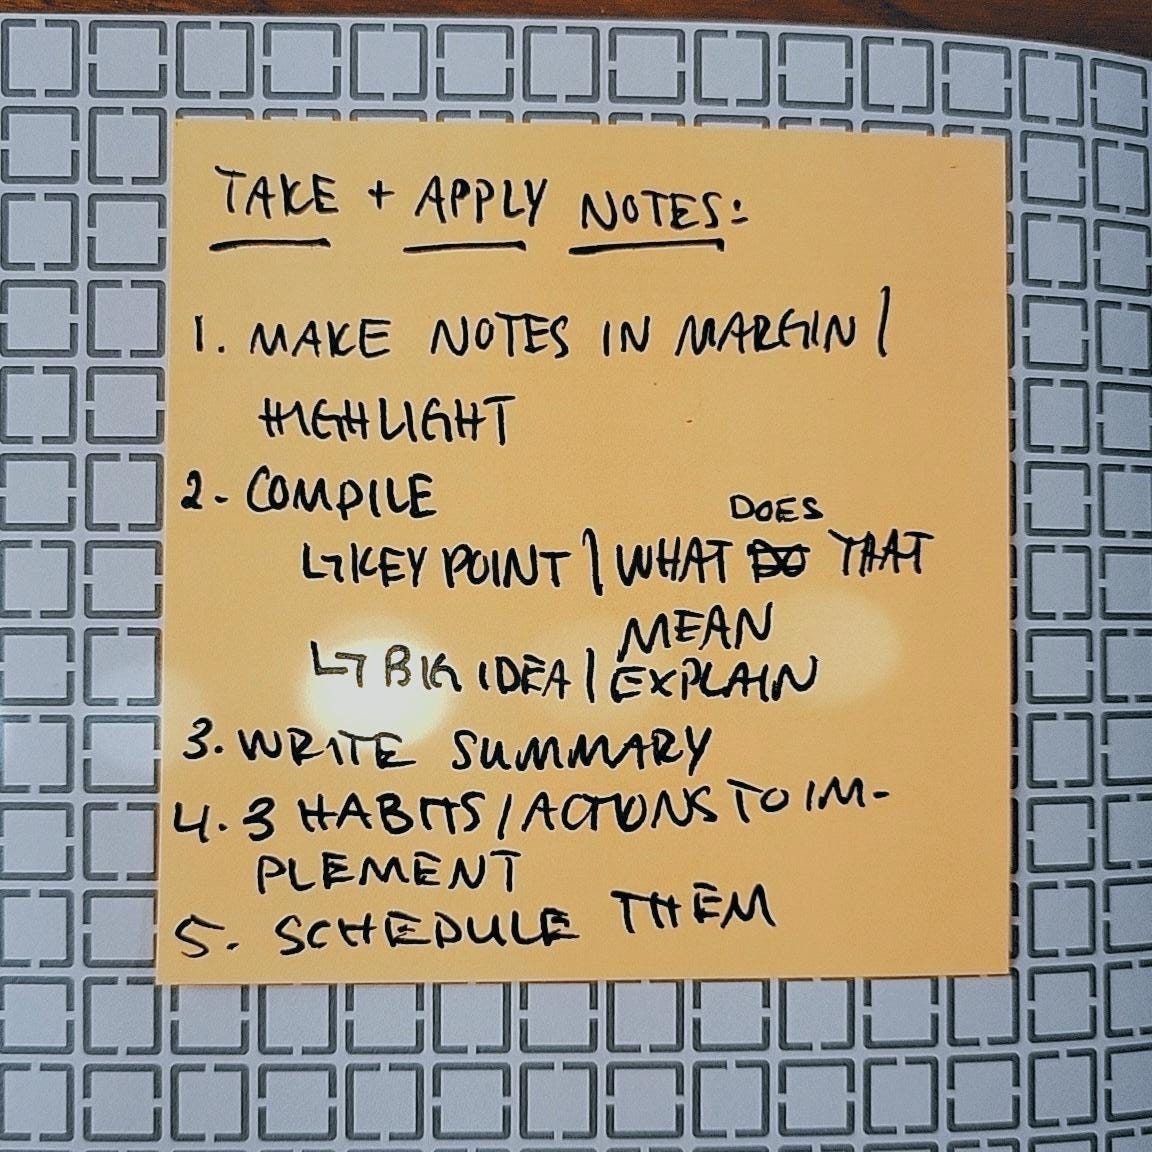 TAKE + APPLY NOTES:
1. MAKE NOTES IN MARGIN /
HIGHLIGHT
2- COMPILE
DOES
↳ KEY POINT / WHAT DO THAT
MEAN
↳ BIG IDEA / EXPLAIN
3. WRITE SUMMARY
4. 3 HABITS / ACTIONS TO IM-
PLEMENT
5. SCHEDULE THEM